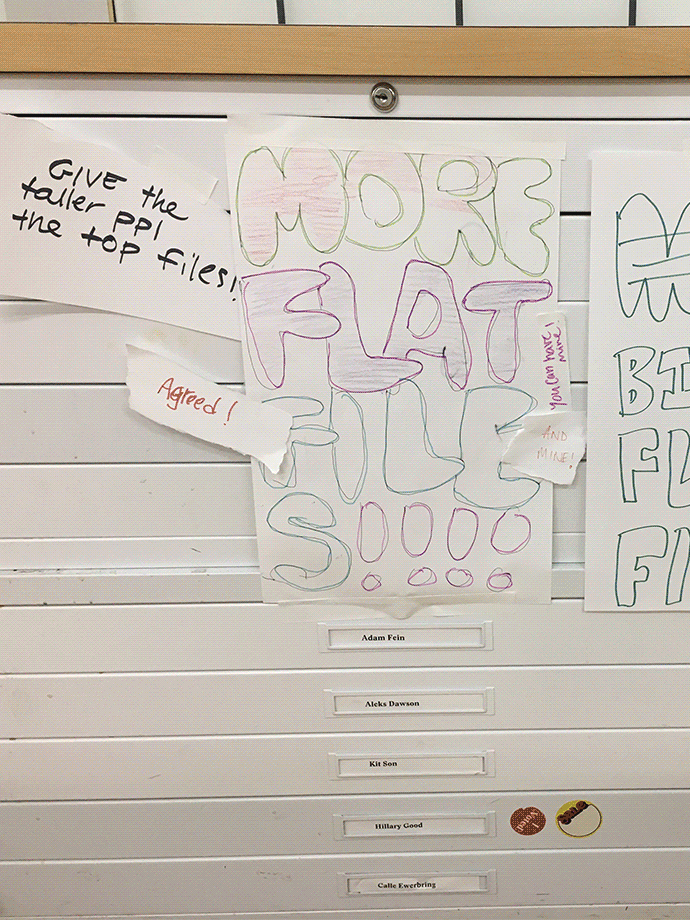 GIVE the
taller PPl
the top files!
MORE
FLAT
FILE
S!!!!
Agreed!
you can have
mine!
AND
MINE!
BI
FL
FI
Adam Fein
Aleks Dawson
Kit Son
Hillary Good
I Voted
Calle Ewerbring